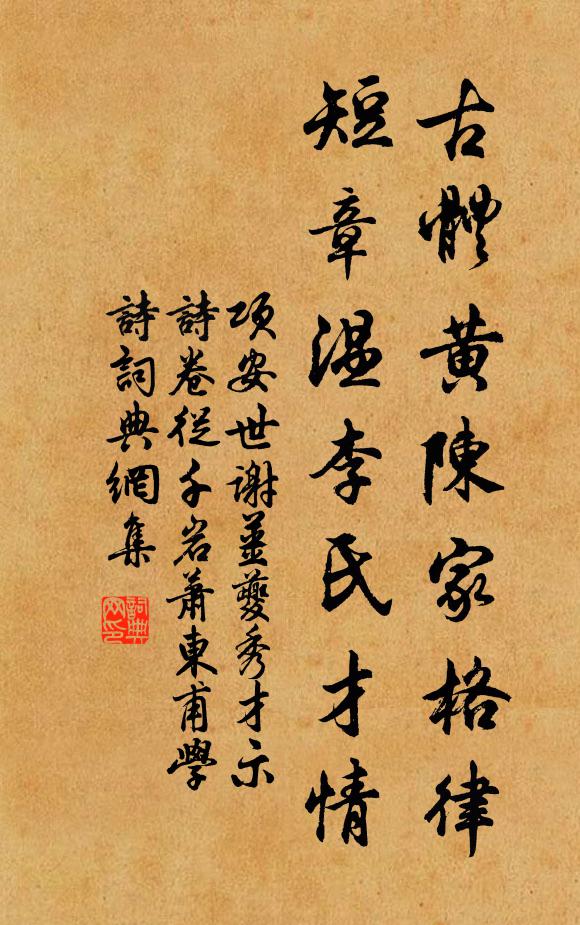 古體黃陳家格律
短章溫李氏才情
項安世謝薑夔秀才示
詩卷從千岩蕭東甫學
詩詞典網集
詞典网印